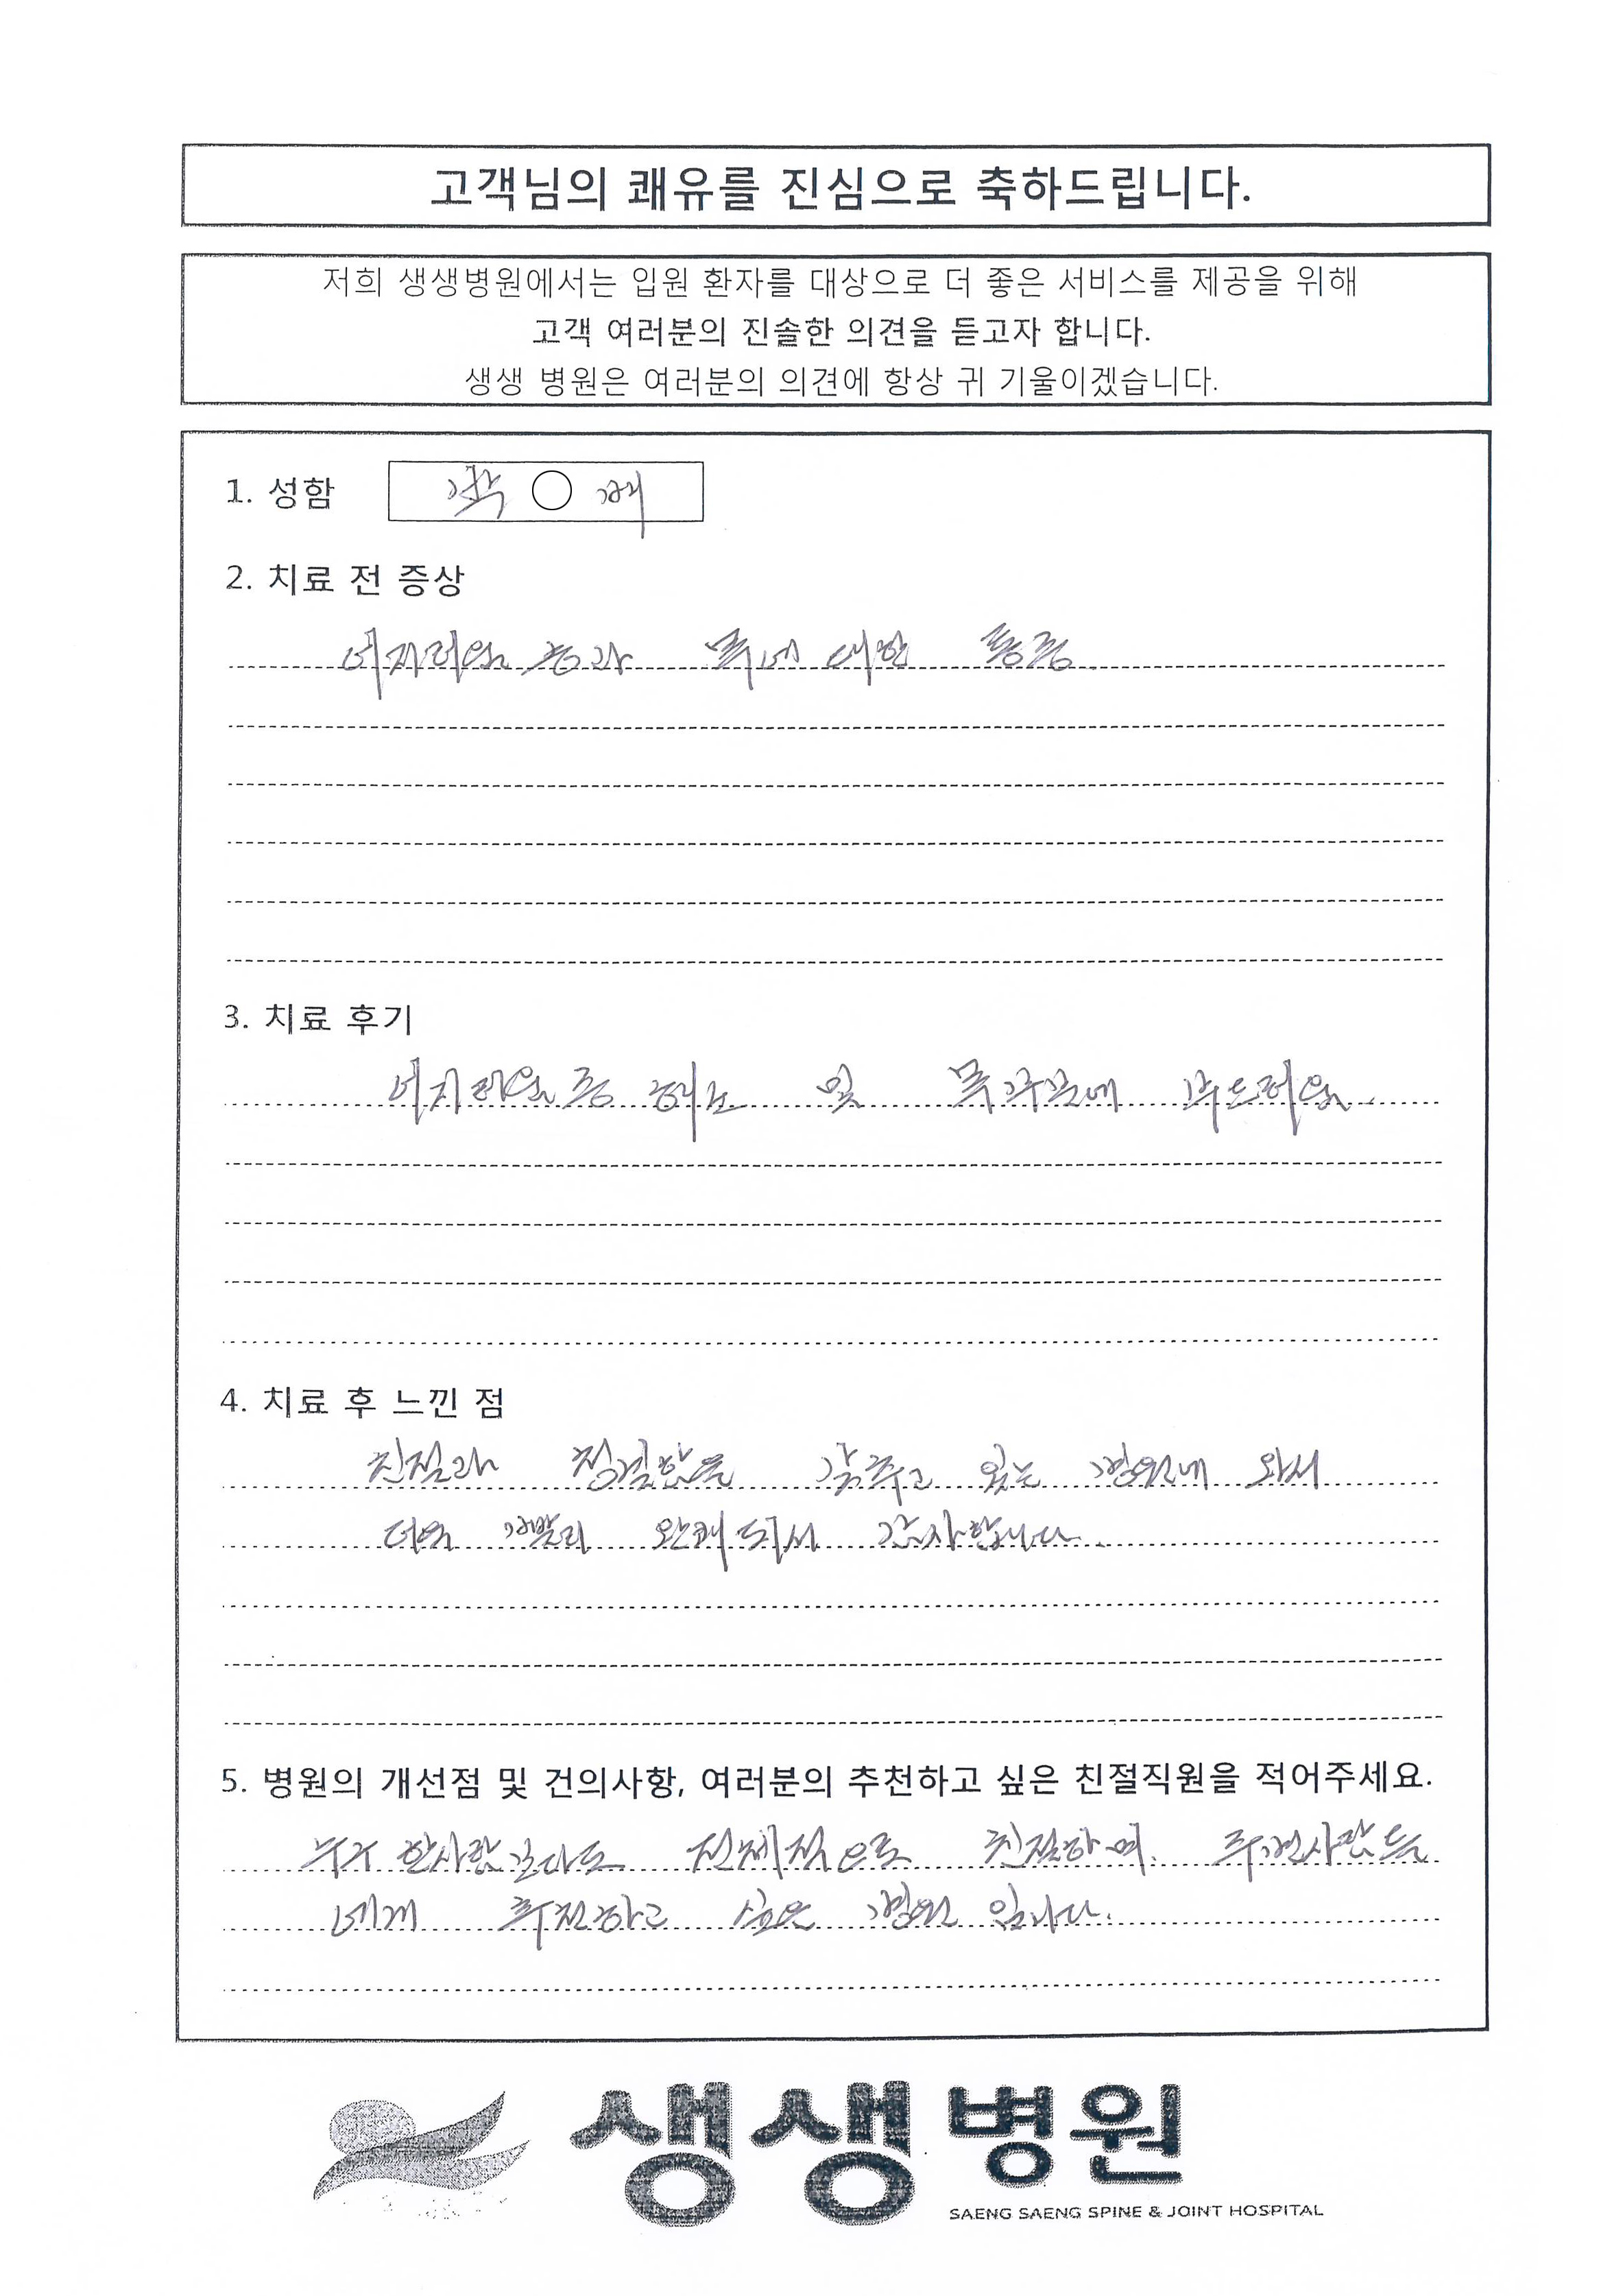 고객님의 쾌유를 진심으로 축하드립니다.
저희 생생병원에서는 입원 환자를 대상으로 더 좋은 서비스를 제공을 위해
고객 여러분의 진솔한 의견을 듣고자 합니다.
생생 병원은 여러분의 의견에 항상 귀 기울이겠습니다.
1. 성함
2. 치료 전 증상
어지러움 증과 목에 대한 통증
3. 치료 후기
어지러움 증 해소 및 목 부드러움.
4. 치료 후 느낀 점
친절과 청결함을 갖추고 있는 병원에 와서
더욱 빨리 완쾌되서 감사합니다.
5. 병원의 개선점 및 건의사항, 여러분의 추천하고 싶은 친절직원을 적어주세요.
누구 한사람 전체적으로 친절하여 주변사람들
에게 추천하고 싶은 병원 입니다.
생생병원
SAENG SAENG SPINE & JOINT HOSPITAL